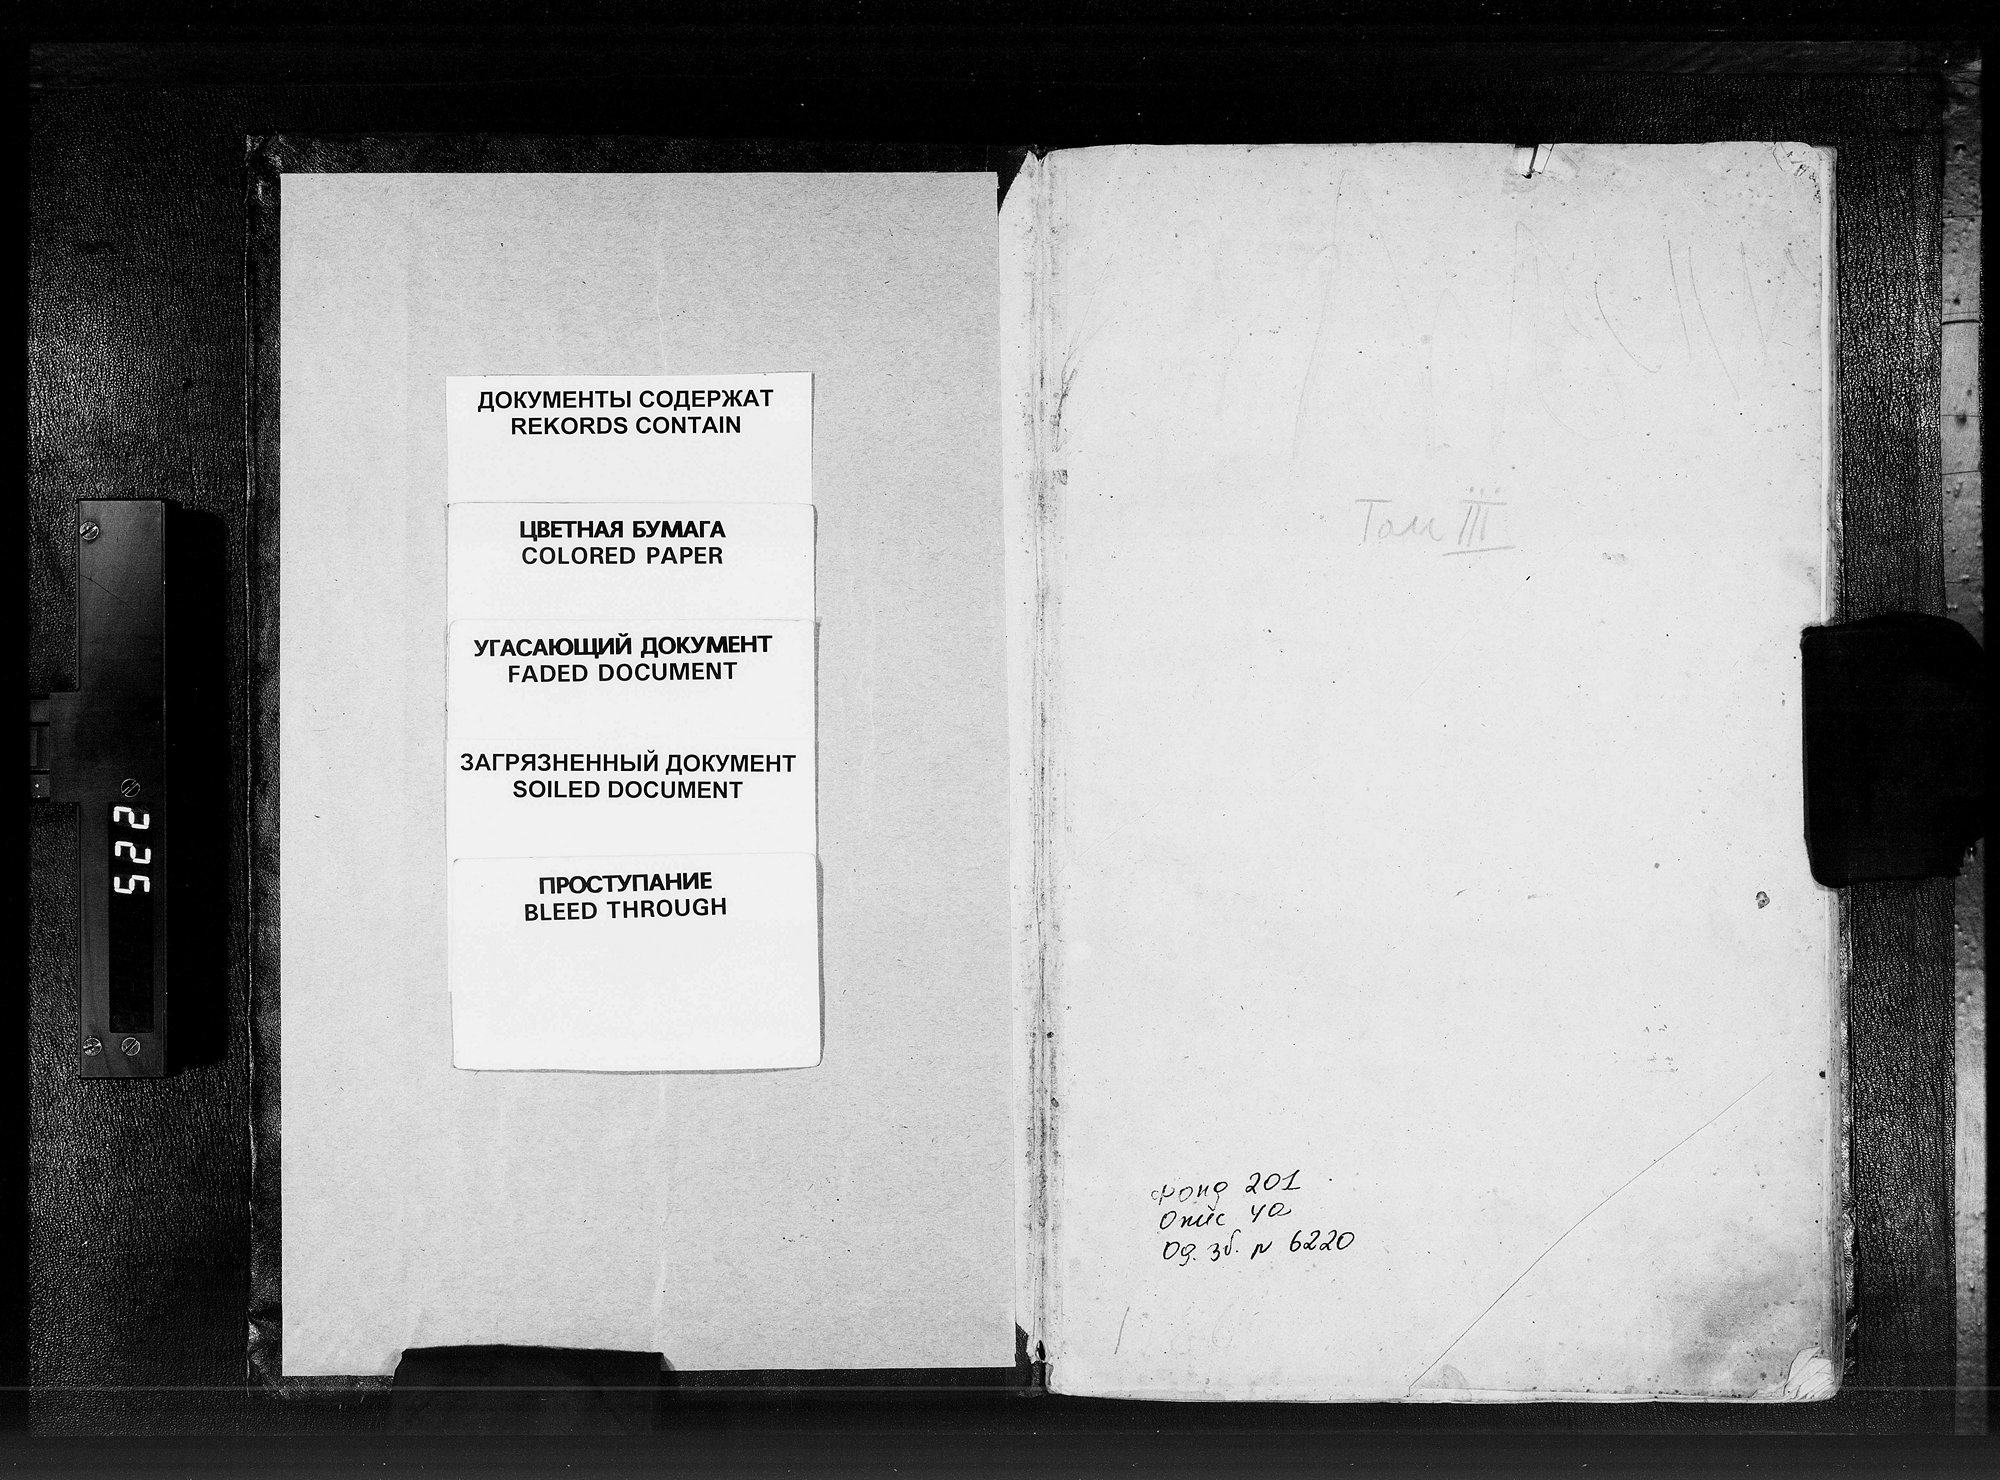 ДОКУМЕНТЫ СОДЕРЖАТ
REKORDS CONTAIN
ЦВЕТНАЯ БУМАГА
COLORED PAPER
УГАСАЮЩИЙ ДОКУМЕНТ
FADED DOCUMENT
ЗАГРЯЗНЕННЫЙ ДОКУМЕНТ
SOILED DOCUMENT
ПРОСТУПАНИЕ
BLEED THROUGH
225
Том III
Фонд 201
Опис 4а
Од. зб. № 6220